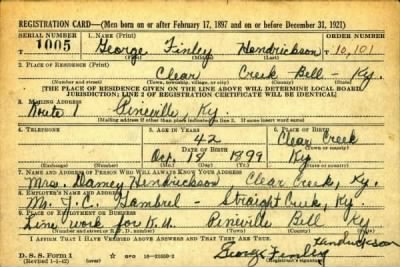 REGISTRATION CARD—(Men born on or after February 17, 1897 and on or before December 31, 1921)
SERIAL NUMBER 1. NAME (Print) ORDER NUMBER
1005 George Finley Hendrickson 10,101
(First) (Middle) (Last)
2. PLACE OF RESIDENCE (Print)
Clear Creek Bell - Ky.
(Number and street) (Town, township, village, or city) (County) (State)
[THE PLACE OF RESIDENCE GIVEN ON THE LINE ABOVE WILL DETERMINE LOCAL BOARD
JURISDICTION; LINE 2 OF REGISTRATION CERTIFICATE WILL BE IDENTICAL]
3. MAILING ADDRESS
Route 1 Pineville Ky.
[Mailing address if other than place indicated on line 2. If same insert word same]
4. TELEPHONE 5. AGE IN YEARS 6. PLACE OF BIRTH
42 Clear Creek
DATE OF BIRTH (Town or county)
Oct. 18 1899 Ky
(Exchange) (Number) (Mo.) (Day) (Yr.) (State or country)
7. NAME AND ADDRESS OF PERSON WHO WILL ALWAYS KNOW YOUR ADDRESS
Mrs. Hendrickson Clear Creek, Ky.
8. EMPLOYER'S NAME AND ADDRESS
Mr. J. C. Gambrel - Straight Creek, Ky.
9. PLACE OF EMPLOYMENT OR BUSINESS
Line work for K.U. Pineville Bell Ky
(Number and street or R. F. D. number) (Town) (County) (State)
I AFFIRM THAT I HAVE VERIFIED ABOVE ANSWERS AND THAT THEY ARE TRUE.
D. S. S. Form 1 George Finley Hendrickson
(Revised 1-1-42) GPO 16—21630-2 (Registrant's signature)